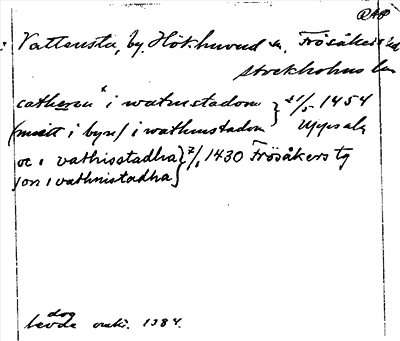 RAP
Vattensta, by. Hökhuvud sn. Frösåkers hd
Stockholms län
catherin i wathnstadom } 21/5 1454
(mitt i byn) i wathnstadom Uppsala
oc i vathisstadha } 7/1 1430 Frösåkers tg
jon i vathnistadha }
dog
levde omkr. 1384.